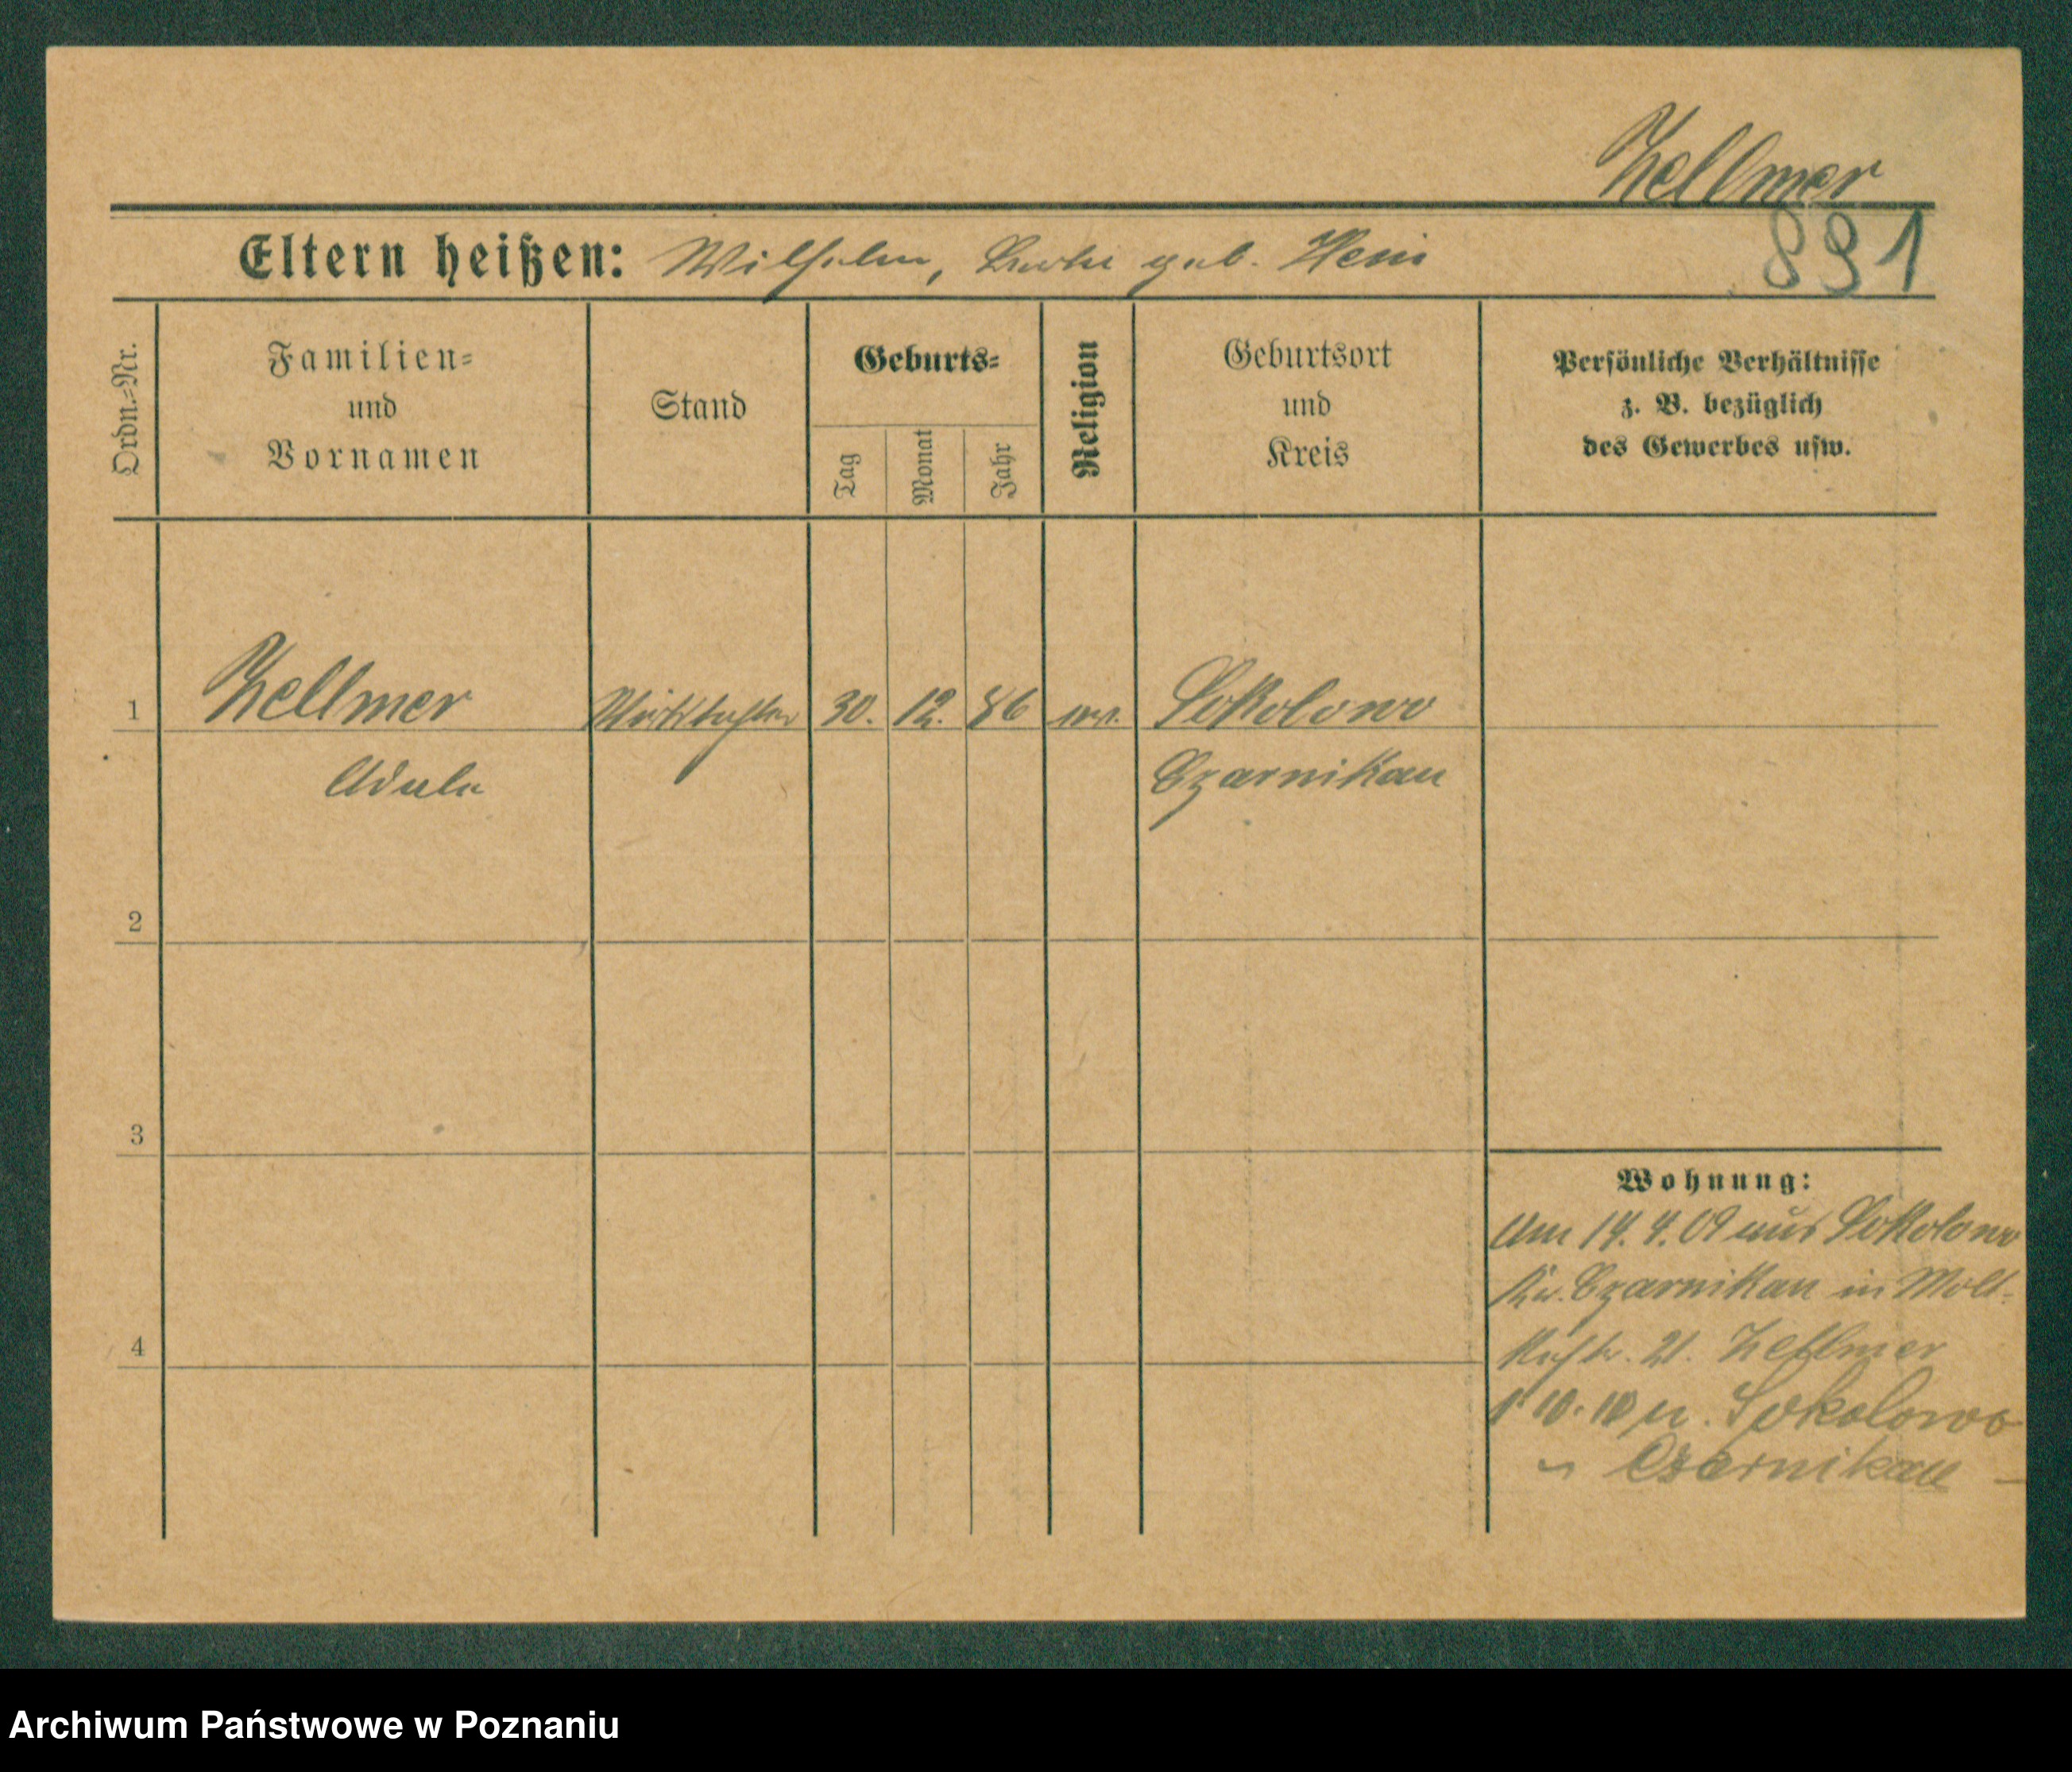 Zellmer
891
Eltern heißen: Wilhelm, geb. Hein
Ordn.=Nr.
Familien=
und
Vornamen
Stand
Geburts=
Tag
Monat
Jahr
Religion
Geburtsort
und
Kreis
Persönliche Verhältnisse
z. B. bezüglich
des Gewerbes usw.
1 Zellmer 30. 12. 86 Sokolowo
Czarnikau
2
3
4
Wohnung:
Am 14. 4. 09 aus Sokolowo
Kr. Czarnikau in Molt-
kestr. 21. Zellmer
10. 10 n. Sokolowo
Czarnikau
Archiwum Państwowe w Poznaniu